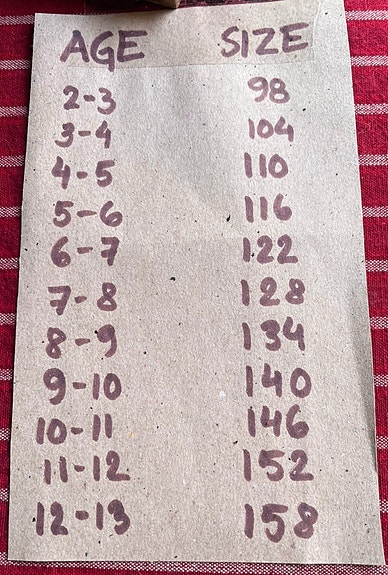 AGE SIZE
2-3 98
3-4 104
4-5 110
5-6 116
6-7 122
7-8 128
8-9 134
9-10 140
10-11 146
11-12 152
12-13 158